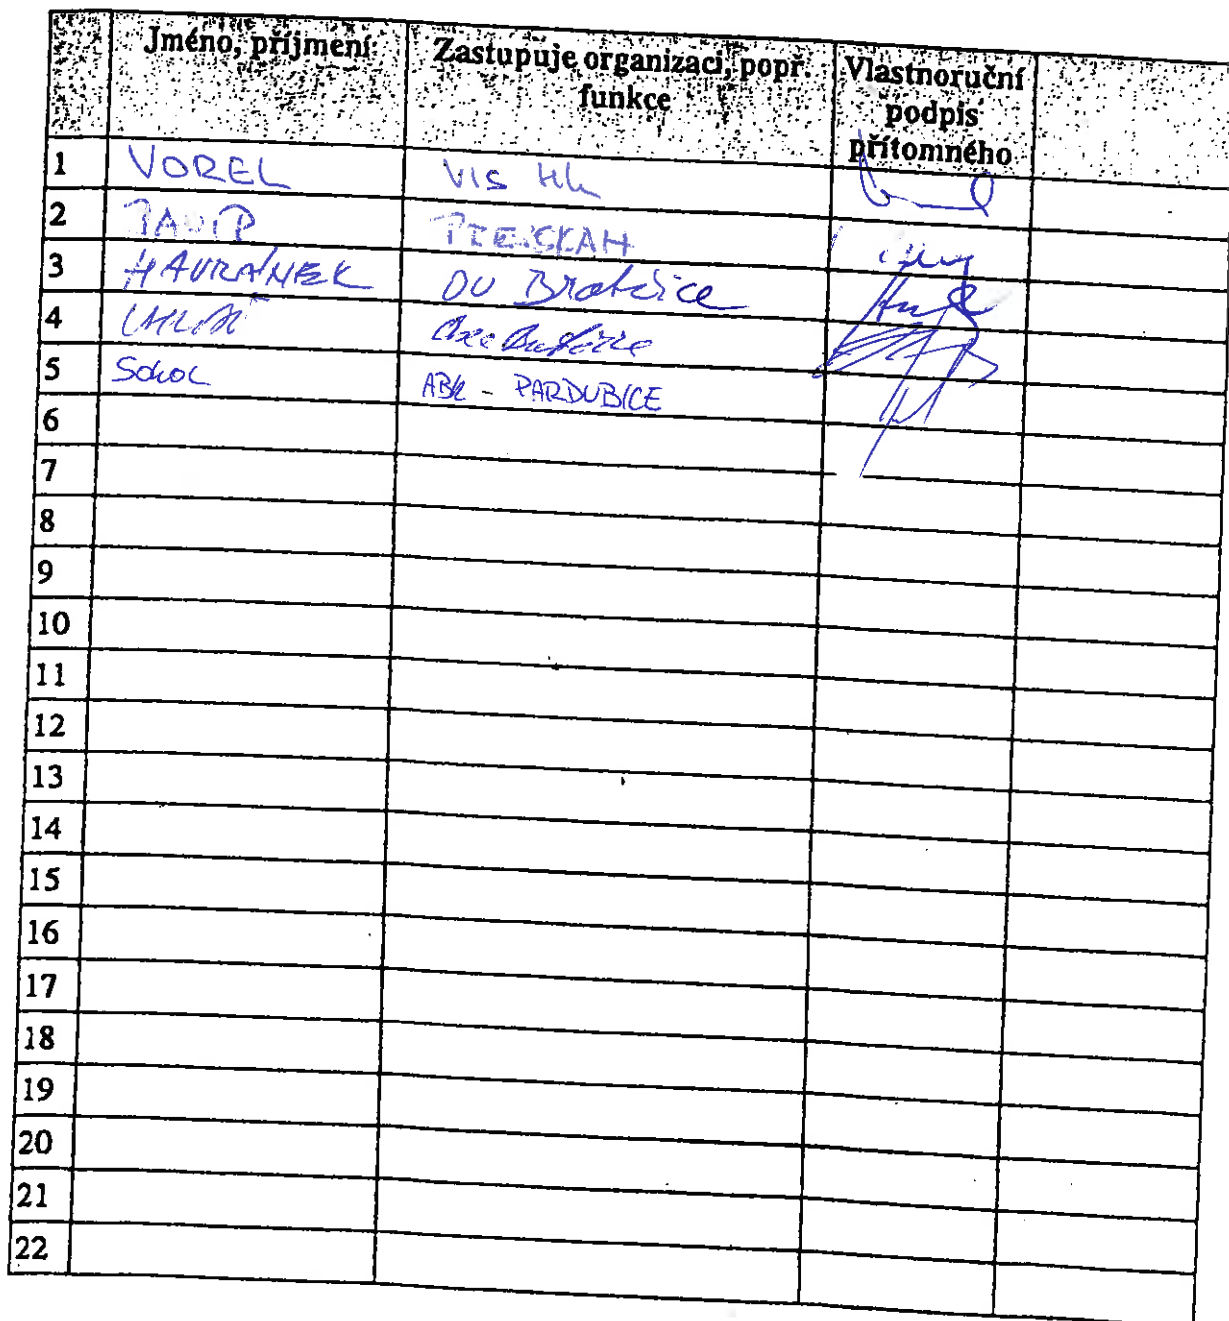 Jméno, příjmení: Zastupuje organizaci, popř. funkce Vlastnoruční podpis přítomného
1 VOREL VIS HK
2
3 HAVRÁNEK OÚ Bratčice
4
5 Sokol ABK - PARDUBICE
6
7
8
9
10
11
12
13
14
15
16
17
18
19
20
21
22